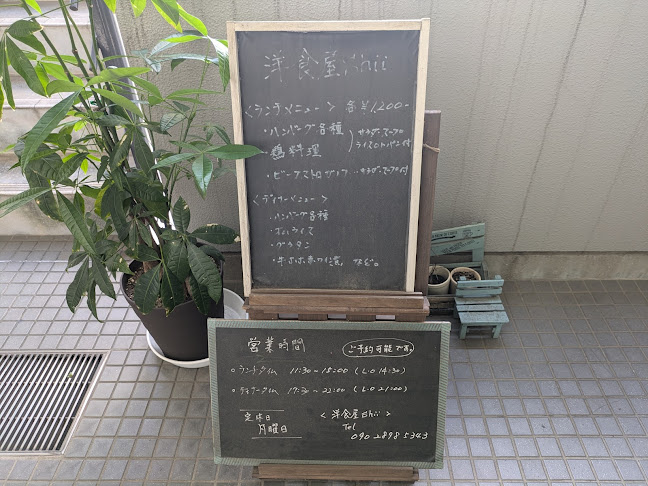 洋食屋Shii
<ランチメニュー> 各¥1,200-
・ハンバーグ各種
・鶏料理
サラダ、スープ
ライスorパン付
・ビーフストロガノフ ・サラダ、スープ付
<ディナーメニュー>
・ハンバーグ各種
・オムライス
・グラタン
・牛ほほ赤ワイン煮。 など。
営業時間 ご予約可能です。
○ランチタイム 11:30~15:00 (L.O 14:30)
○ディナータイム 17:30~22:00 (L.O 21:00)
定休日
月曜日
<洋食屋Shii>
Tel
090 2898 5343